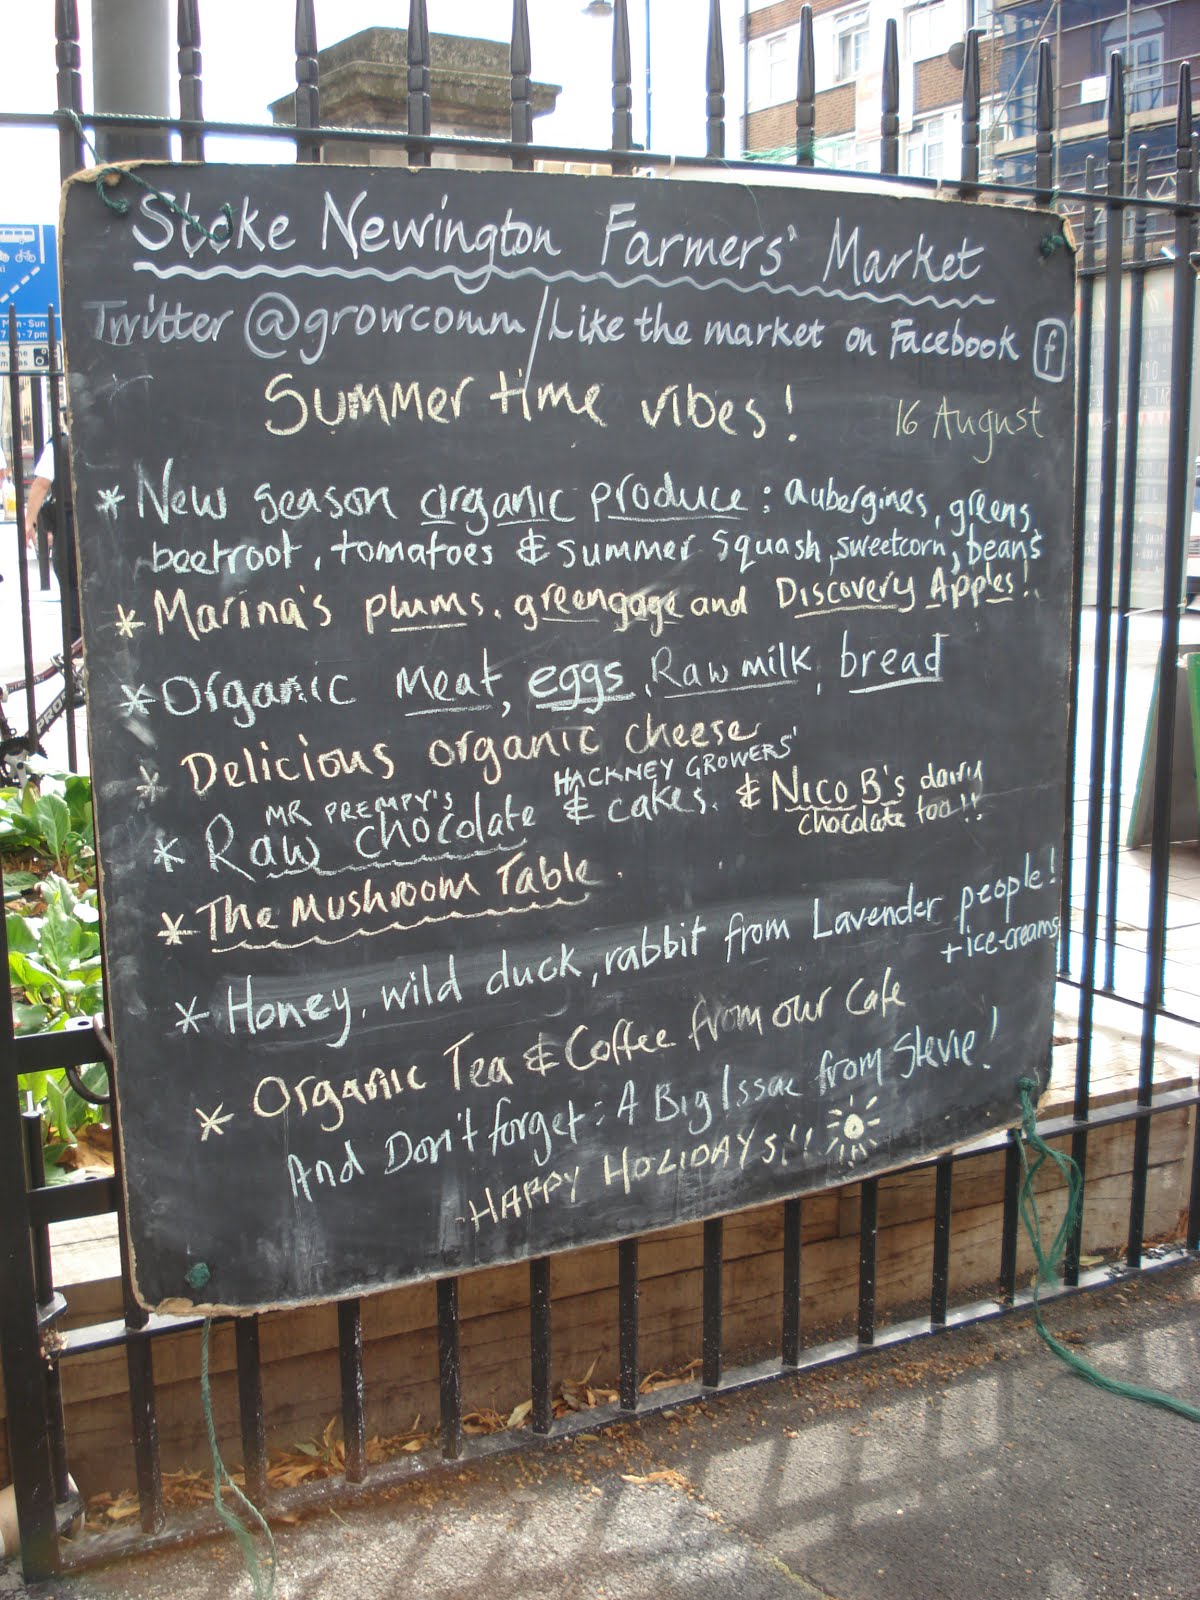 Stoke Newington Farmers' Market
Twitter @growcomm / Like the market on Facebook f
Summer time vibes!
16 August
* New season organic produce: aubergines, greens,
beetroot, tomatoes & summer squash, sweetcorn, beans
* Marina's plums, greengage and Discovery Apples!
* Organic meat, eggs, Raw milk, bread
* Delicious organic cheese
MR PREMPY'S HACKNEY GROWERS'
* Raw chocolate & cakes. & Nico B's dairy
chocolate too!!
* The Mushroom Table.
* Honey, wild duck, rabbit from Lavender people!
+ ice-creams
* Organic Tea & Coffee from our Cafe
And Don't forget: A Big Issue from Stevie!
HAPPY HOLIDAYS!!
Mon - Sun
7am-7pm
PRO